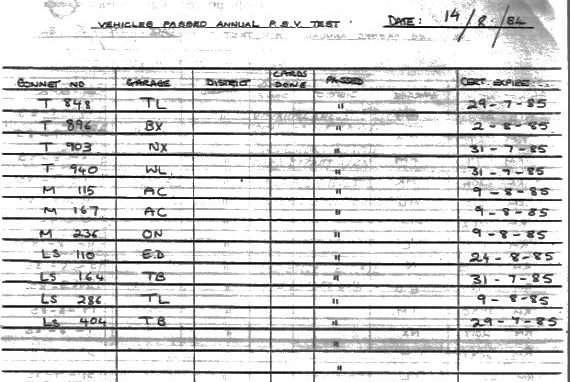 VEHICLES PASSED ANNUAL P.S.V. TEST DATE: 14/8/84
BONNET NO GARAGE DISTRICT CARDS DONE PASSED CERT. EXPIRES
T 848 TL " 29-7-85
T 896 BX " 2-8-85
T 903 NX " 31-7-85
T 940 WL " 31-7-85
M 115 AC " 9-8-85
M 167 AC " 9-8-85
M 236 ON " 9-8-85
LS 110 ED " 24-8-85
LS 164 TB " 31-7-85
LS 286 TL " 9-8-85
LS 404 TB " 29-7-85
"
"